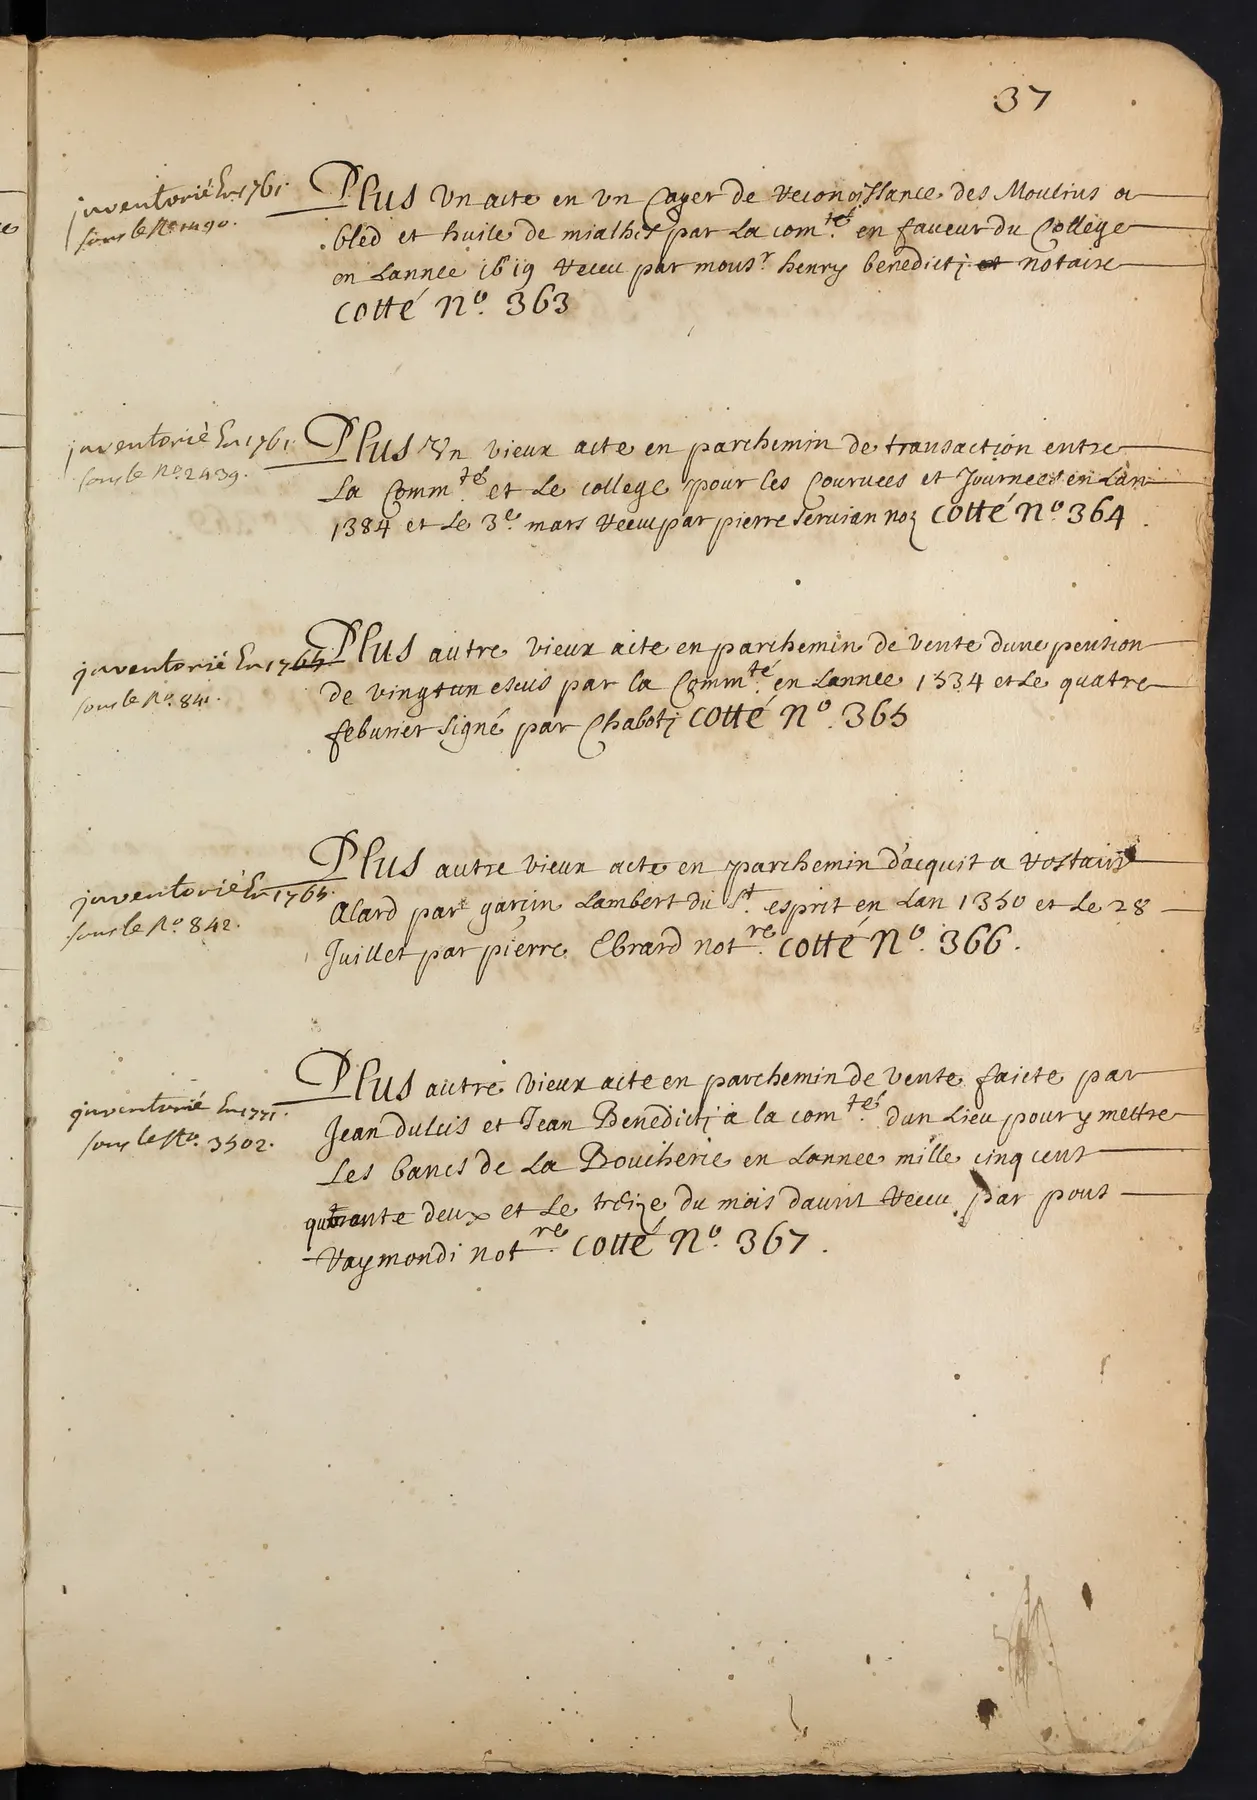 37
inventorié En 1761.
sous le No. 1490.
Plus Un acte en un Cayer de reconoissance des Moulins a
bled et huile de mialhes par La com.tes en faveur du College
en Lannee 1619 receu par mousr henry benedicti notaire
cotté No. 363
inventorié En 1761
sous le No. 2439.
Plus Un vieux acte en parchemin de transaction entre
La Comm.tes et Le college pour les Couruees et Journees en Lan
1384 et Le 3e mars receu par pierre seruian noz cotté No 364
inventorié En 1765
sous le No. 841.
Plus autre vieux acte en parchemin de vente dune pension
de vingt un escus par la Comm.té en Lannee 1534 et Le quatre
feburier signé par Chaboti cotté No. 365
inventorié En 1765.
sous le No. 842.
Plus autre vieux acte en parchemin d'acquit a
Alard par garcin Lambert du St. esprit en Lan 1350 et Le 28
Juillet par pierre Ebrard not.re cotté No. 366.
inventorié En 1771.
sous le No. 3502.
Plus autre vieux acte en parchemin de vente faicte par
Jean dulcis et Jean Benedicti a la com.tes dun Lieu pour y mettre
Les bancs de La Boucherie en Lannee mille cinq cent
quarante deux et Le treize du mois dauril receu par pons
Raymondi not.re cotté No. 367.